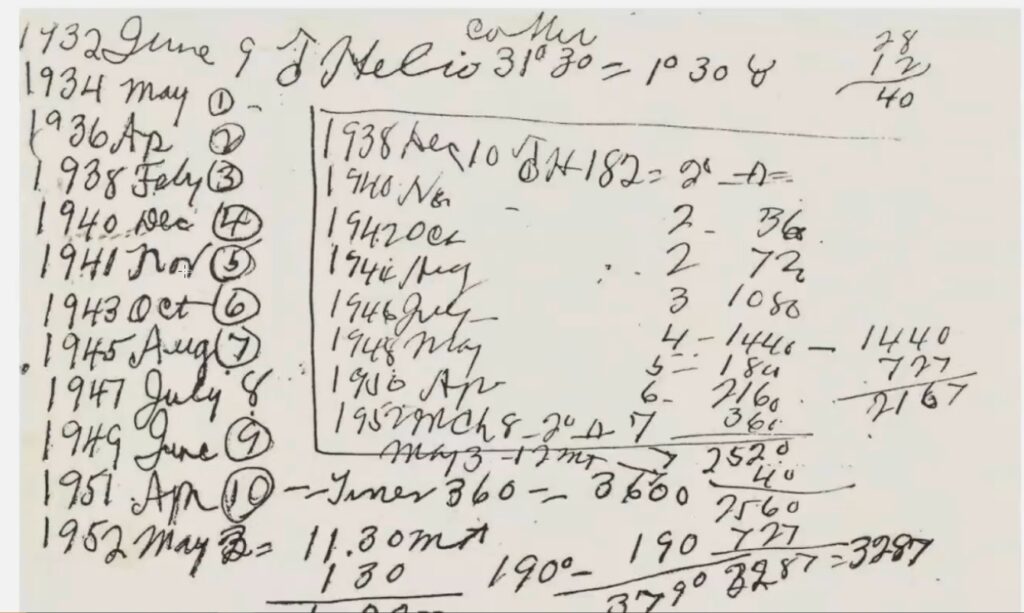 1932 June 9 ♂ Helio 31° 30 = 1° 30 ♉
28
12
40
1934 May ①
1936 Ap ②
1938 Feby ③
1940 Dec ④
1941 Nov ⑤
1943 Oct ⑥
1945 Aug ⑦
1947 July 8
1949 June ⑨
1951 Apr ⑩ - Times 360 = 3600
1952 May 3 = 11.30
130
1938 Dec 10 ♂ H 182 = 2° ♎ =
1940 Nov -
1942 Oct 2 - 360
1944 Aug 2 720
1946 July 3 1080
1948 May 4 - 1440 - 1440
727
2167
1950 Apr 5 = 180
6 - 2160
1952 Mch 8 - 2° ♎ 7 360
May 3 - 7 2520
40
2560
727
3287 = 3287
190° - 190
379°